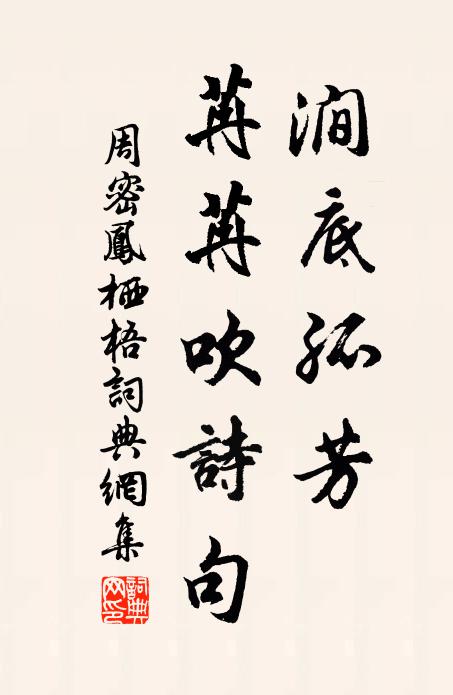 澗底孤芳
苒苒吹詩句
周密鳳栖梧詞典網集
詞典
网印